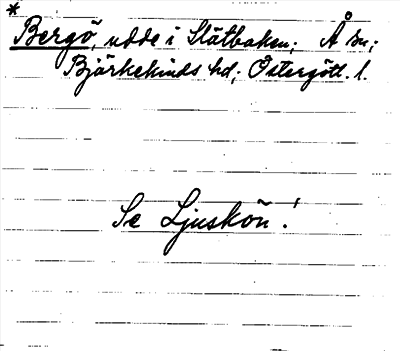 *
Bergö, udde i Slätbaken; Å sn;
Björkekinds hd; Östergötl. l.
Se Ljuskön!